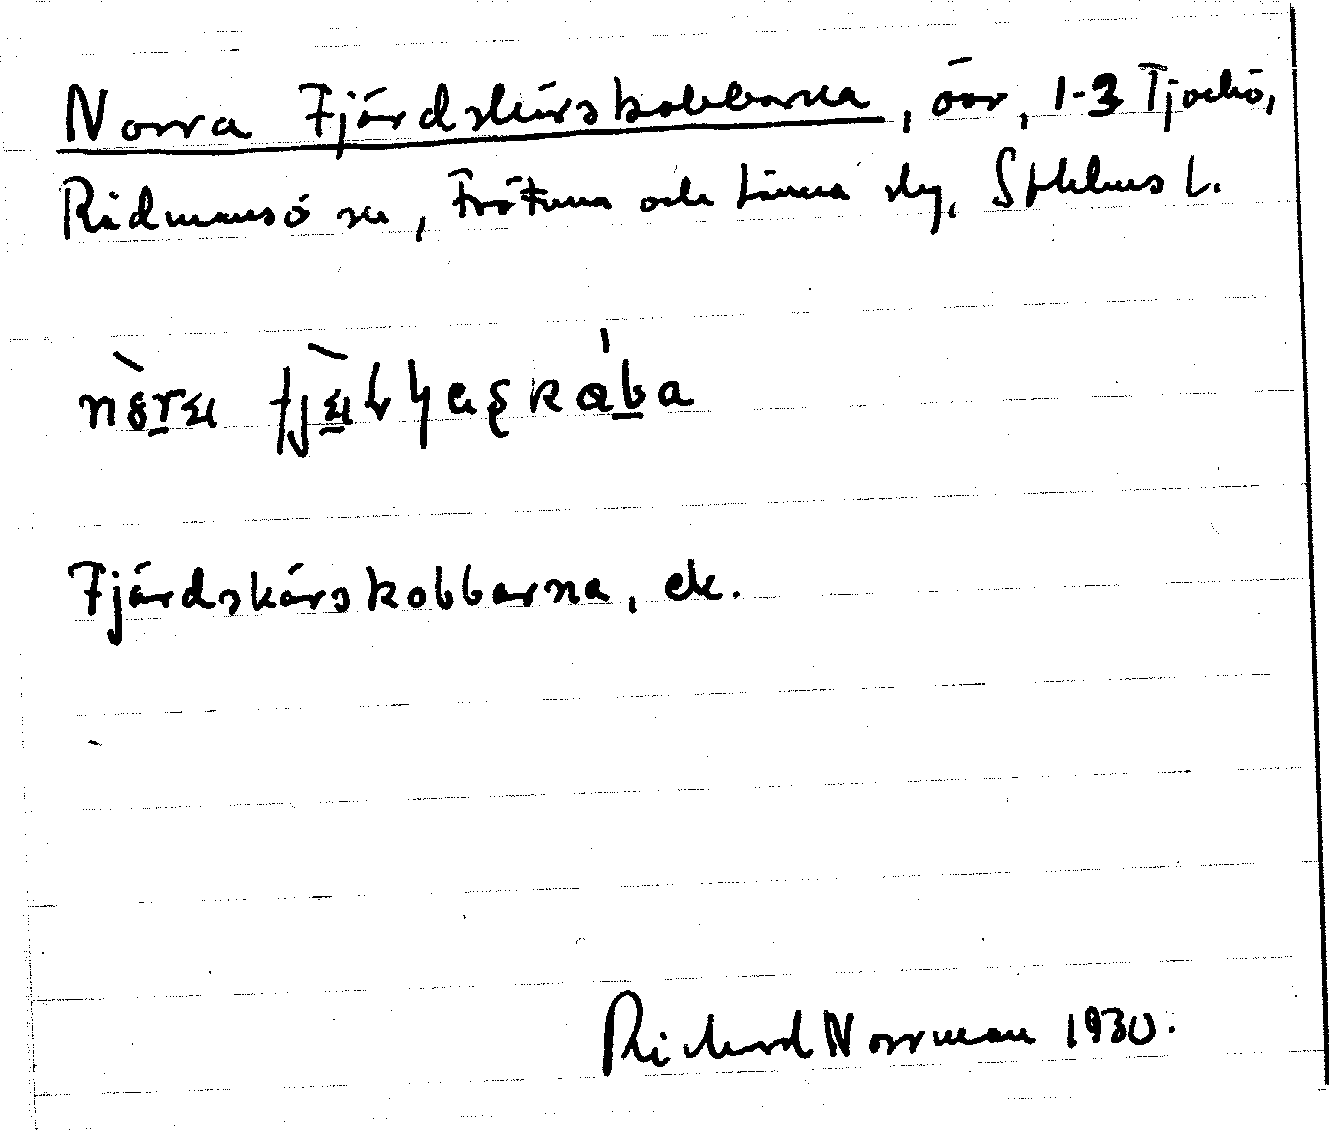 Norra Fjärdskärskobbarna, öar, 1-3 Tjockö,
Rådmansö sn, Frötuna och Länna slg, Sthlms l.
Fjärdskärskobbarna, ek.
Richard Norrman 1930.